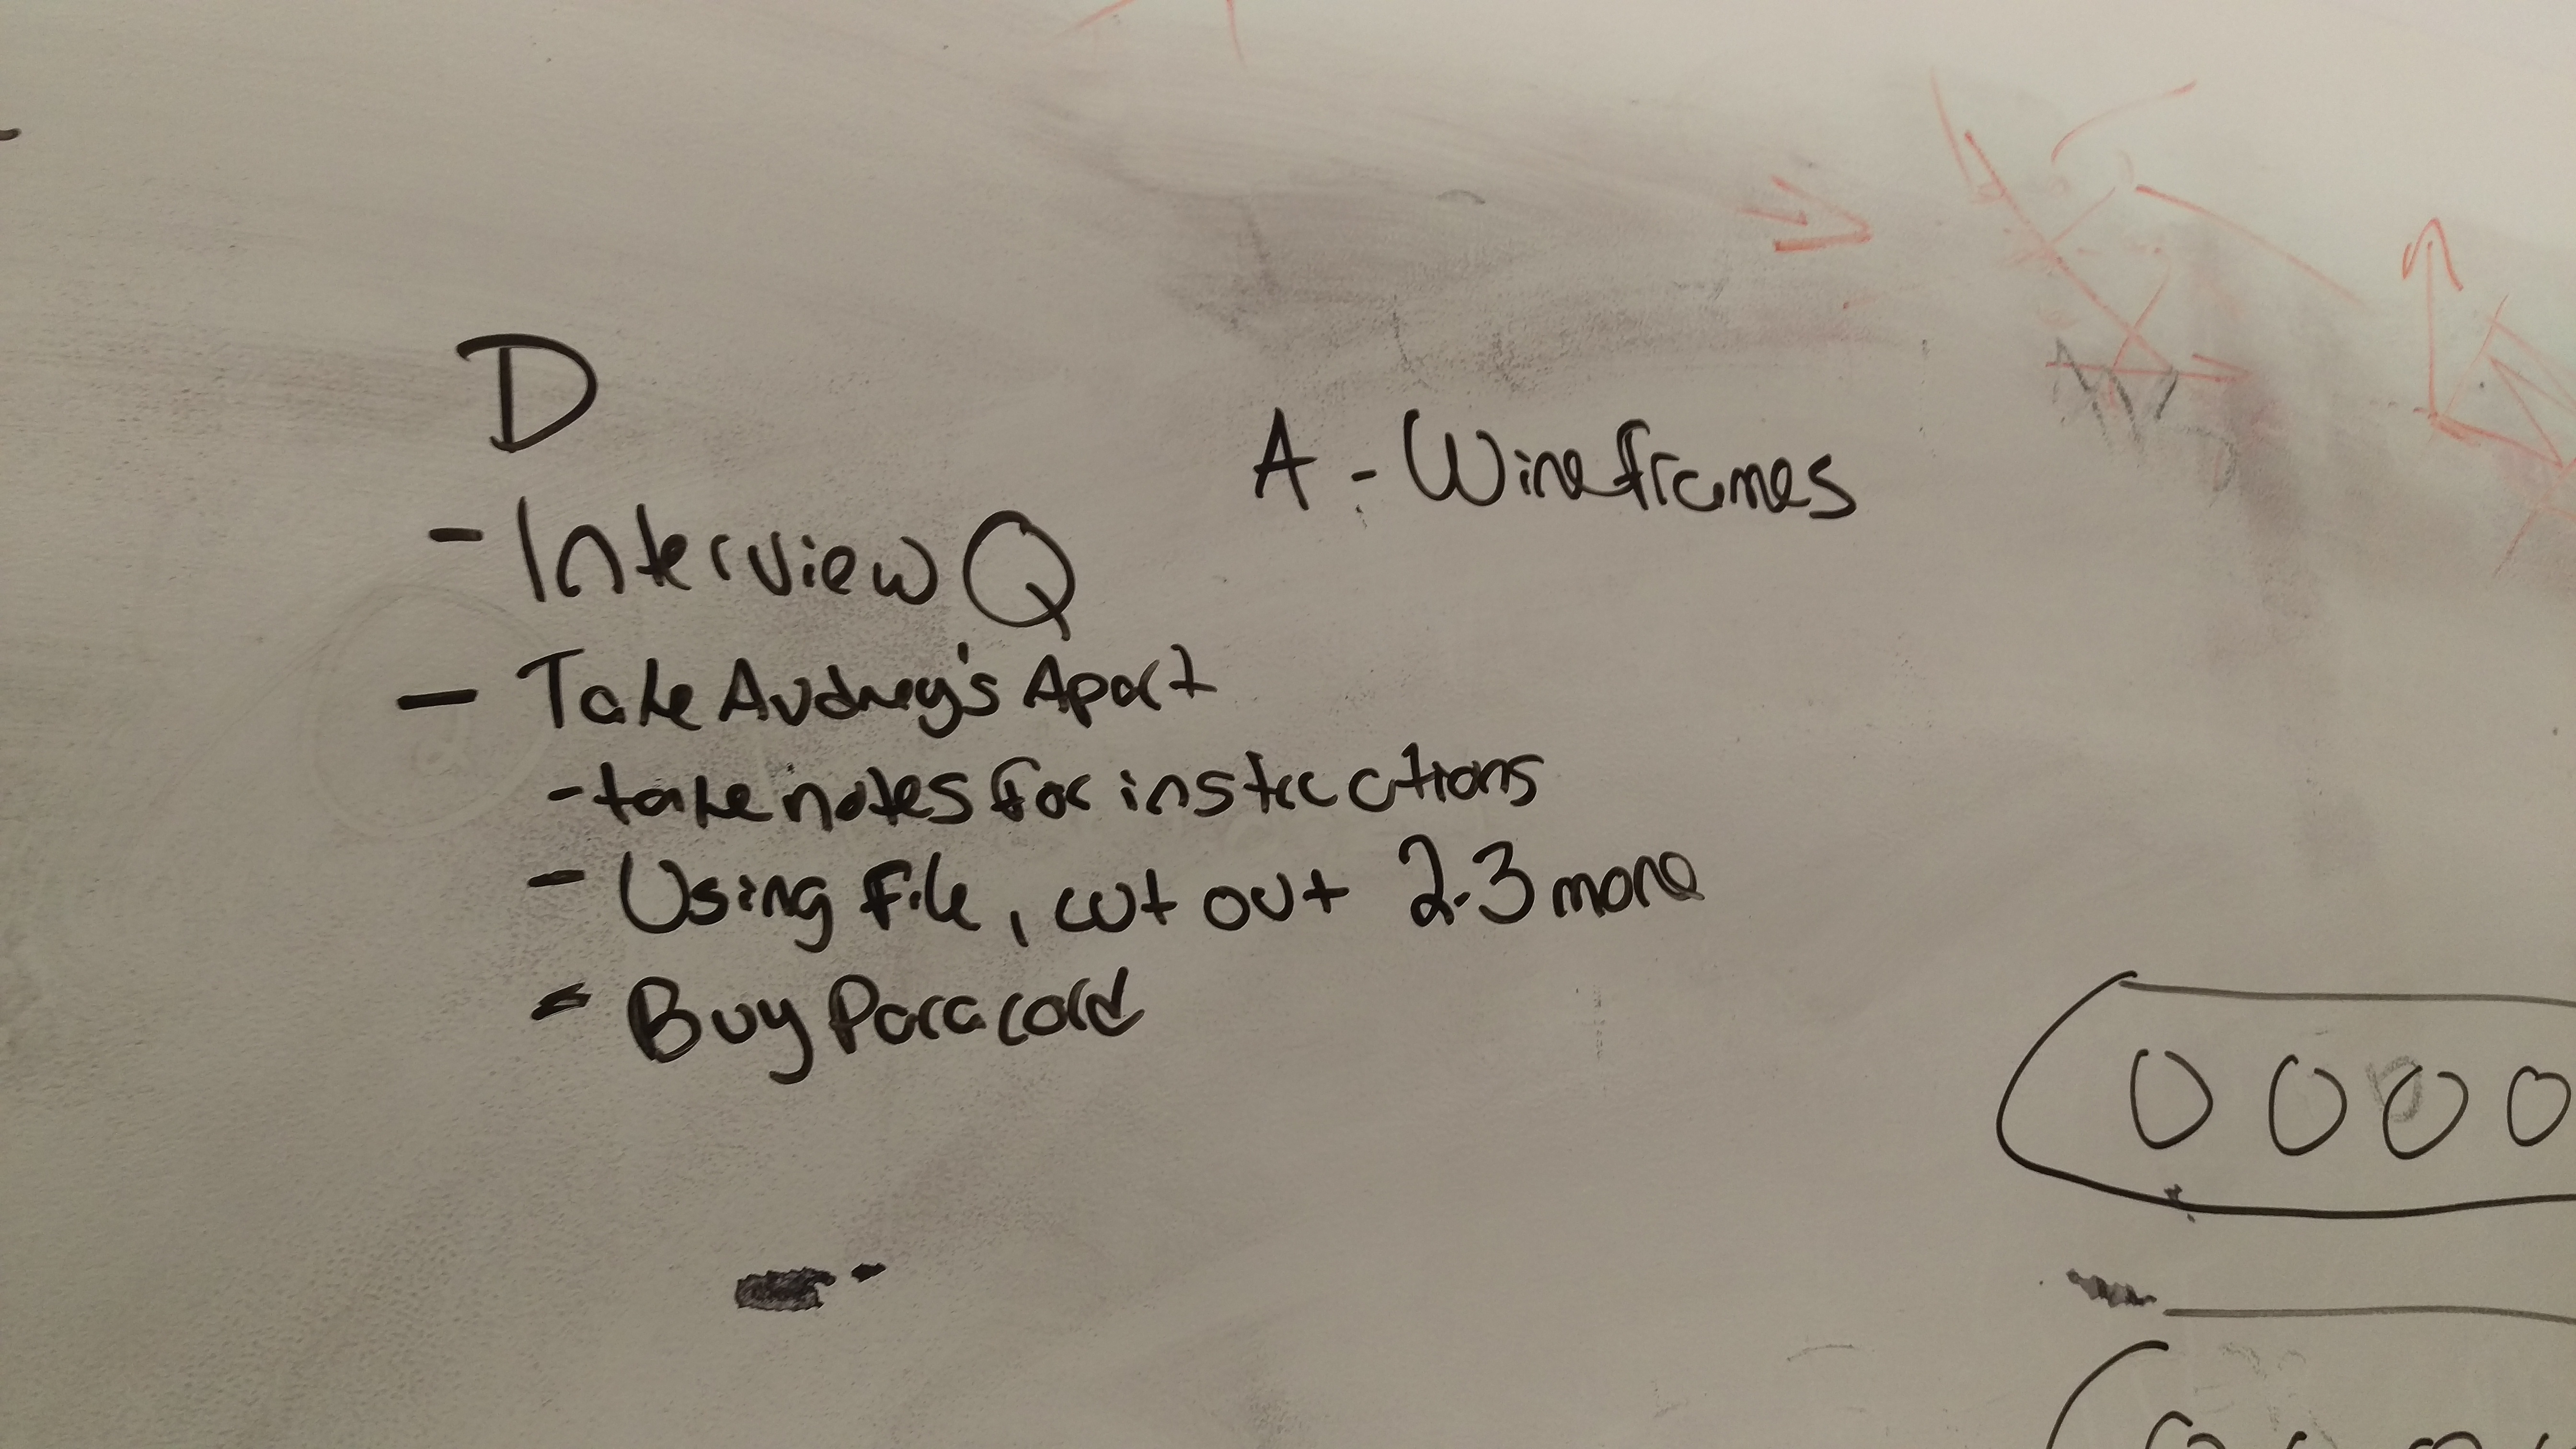 D
- Interview Q
- Take Audrey's Apart
- take notes for instructions
- Using file, cut out 2-3 more
- Buy Paracord
A - Wireframes
0 0 0 0